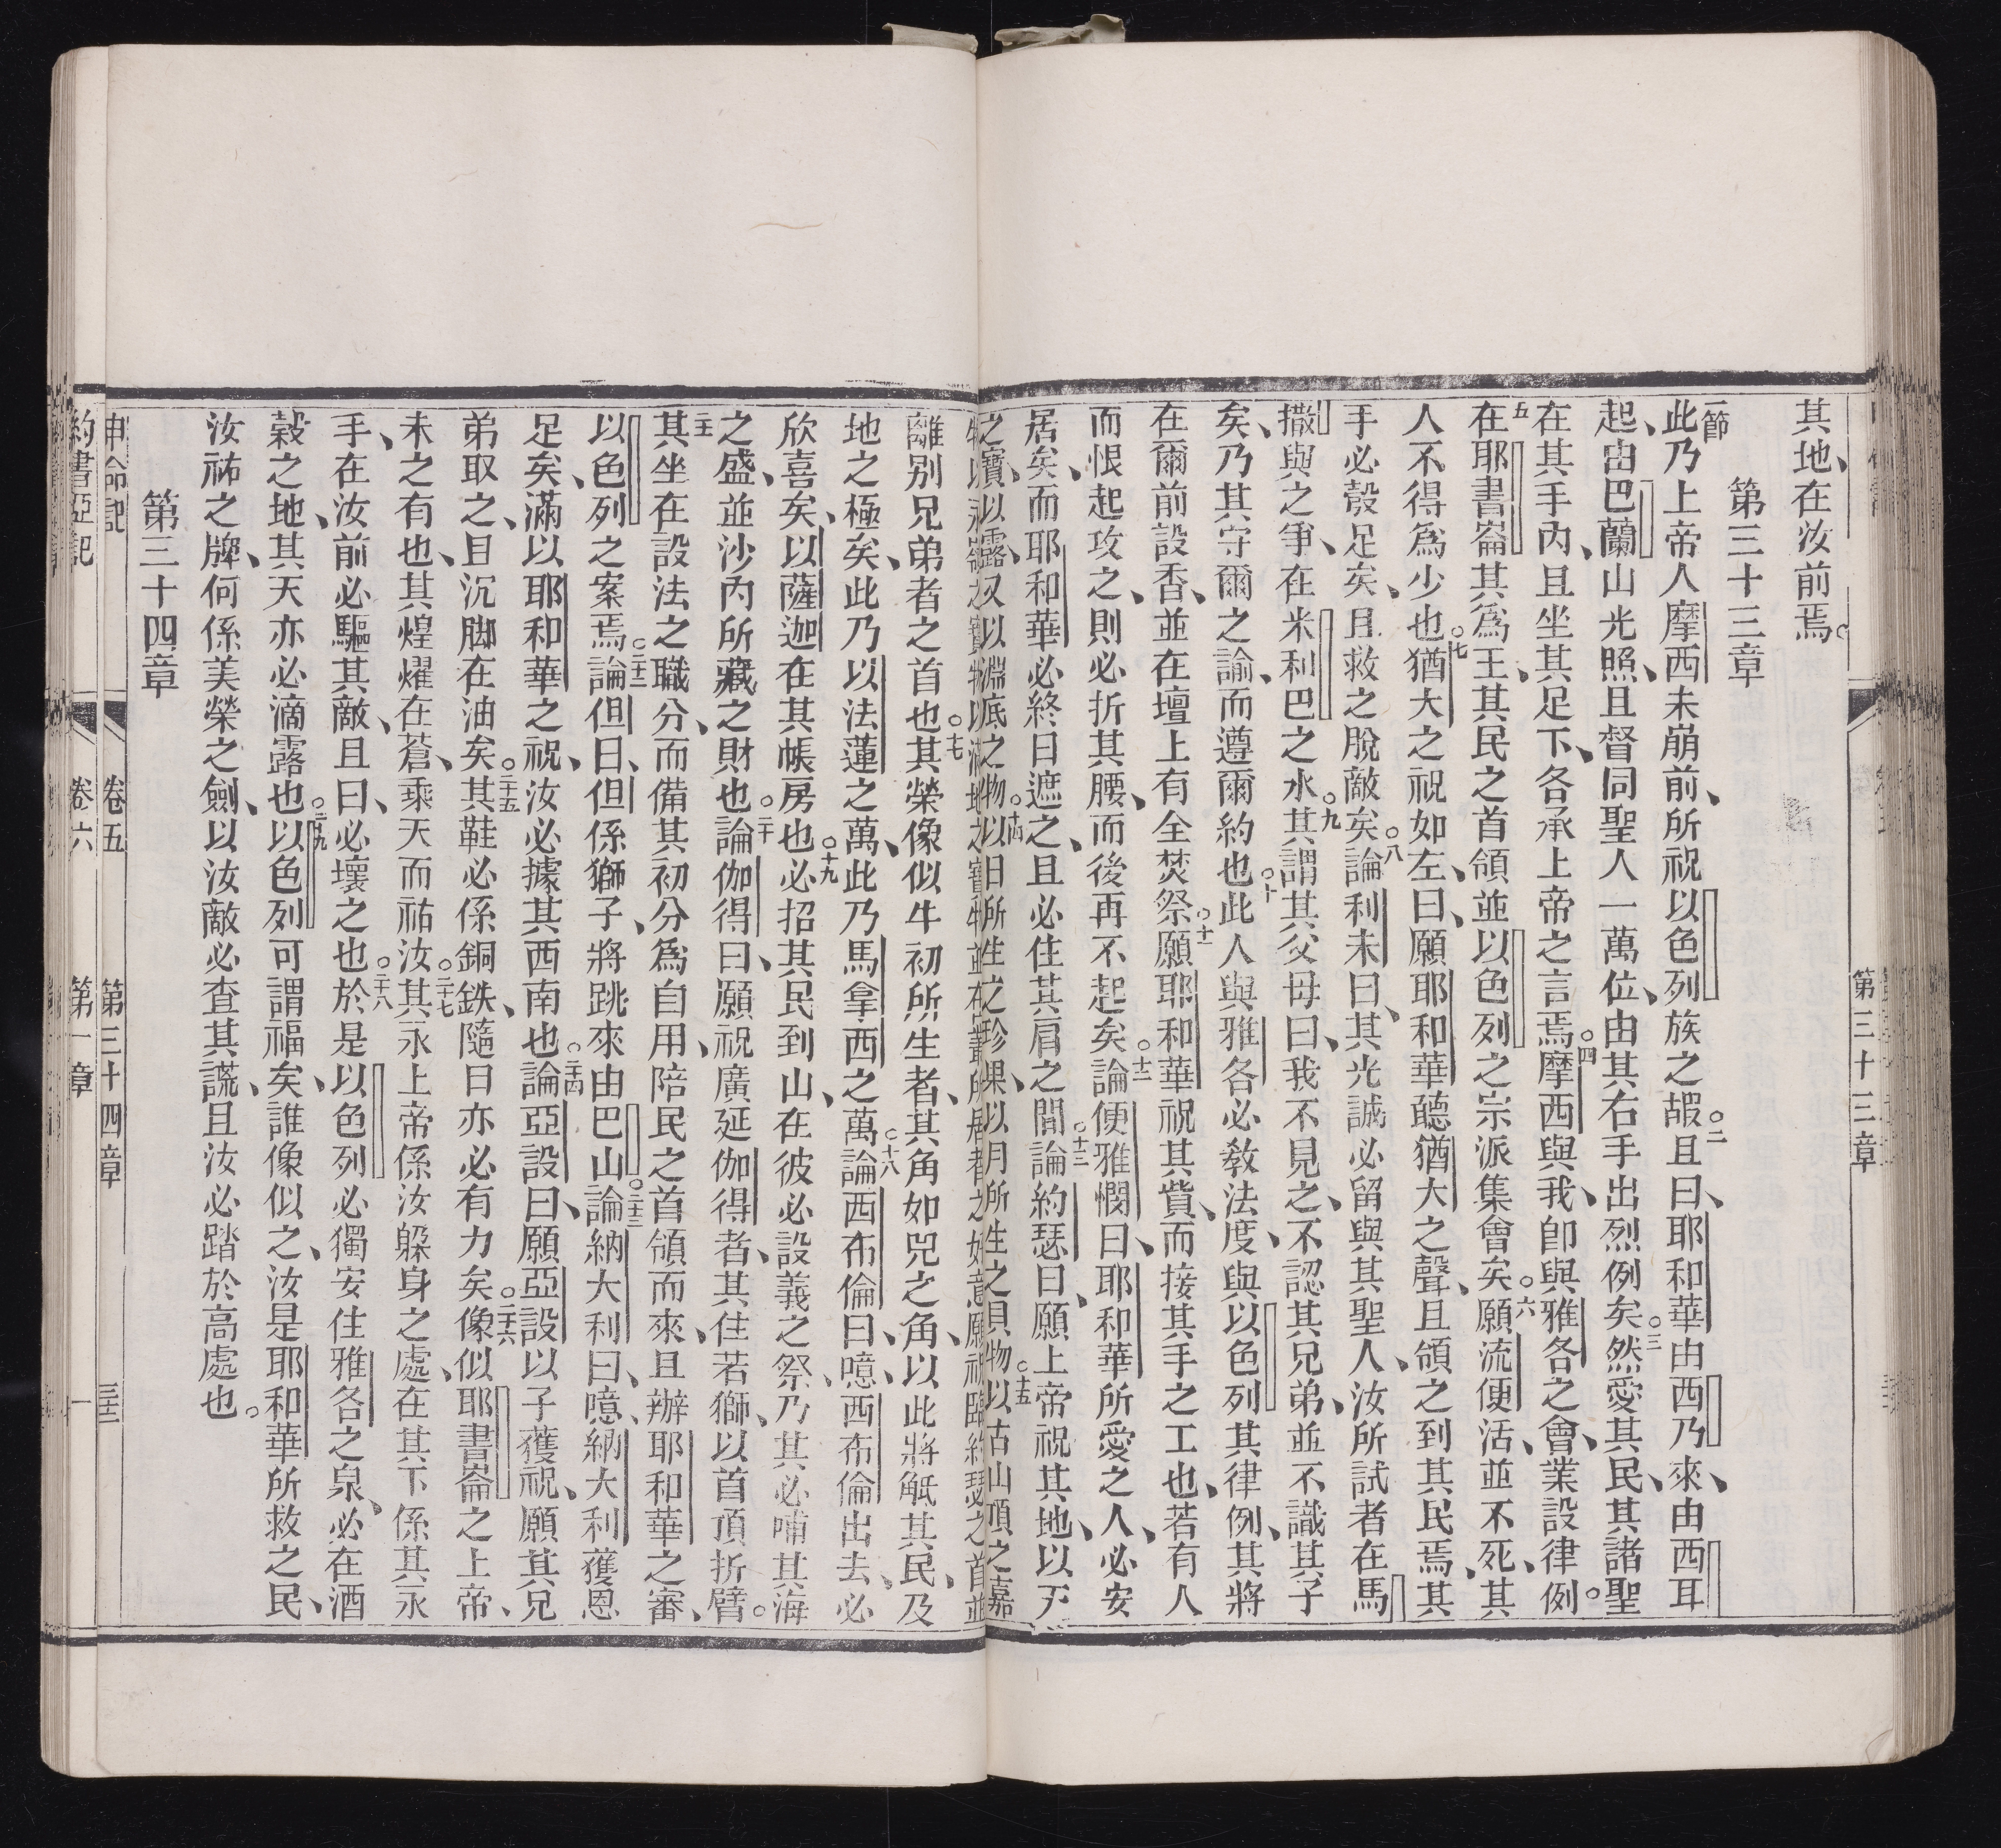 第三十三章
其地、在汝前焉。
第三十三章
一節
此乃上帝人摩西未崩前、所祝以色列族之嘏。二且曰、耶和華由西乃來、由西耳
起、由巴蘭山光照、且督同聖人一萬位、由其右手出烈例矣。三然愛其民、其諸聖
在其手內、且坐其足下、各承上帝之言焉。四摩西與我、卽與雅各之會、業設律例。
五在耶書崙其爲王、其民之首領並以色列之宗派集會矣。六願流便活、並不死、其
人不得爲少也。七猶大之祝如左、曰、願耶和華聽猶大之聲、且領之到其民焉、其
手必彀足矣、且救之脫敵矣。八論利未曰、其光誠必留與其聖人、汝所試者在馬
撒與之爭、在米利巴之水。九其謂其父母曰、我不見之、不認其兄弟、並不識其子
矣、乃其守爾之諭、而遵爾約也。十此人與雅各必教法度、與以色列其律例、其將
在爾前設香、並在壇上有全焚祭。十一願耶和華祝其貲、而接其手之工也、若有人
而恨起攻之、則必折其腰、而後再不起矣。十二論便雅憫曰、耶和華所愛之人、必安
居矣、而耶和華必終日遮之、且必住其肩之間。十三論約瑟曰、願上帝祝其地、以天
之寶、以露、又以淵底之物。十四以日所生之珍果、以月所生之貝物。十五以古山頂之嘉
離別兄弟者之首也。十七其榮像似牛初所生者、其角如兕之角、以此將觝其民、及
地之極矣、此乃以法蓮之萬、此乃馬拿西之萬。十八論西布倫曰、噫、西布倫出去、必
欣喜矣、以薩迦在其帳房也。十九必招其民到山、在彼必設義之祭、乃其必哺其海
之盛、並沙內所藏之財也。二十論伽得曰、願祝廣延伽得者、其住若獅、以首頂折臂。
二十一其坐在設法之職分、而備其初分爲自用、陪民之首領而來、且辦耶和華之審、
以色列之案焉。二十二論但曰、但係獅子、將跳來由巴山。二十三論納大利曰、噫、納大利獲恩
足矣、滿以耶和華之祝、汝必據其西南也。二十四論亞設曰、願亞設以子獲祝、願其兄
弟取之、且沉脚在油矣。二十五其鞋必係銅鉄、隨日亦必有力矣。二十六像似耶書崙之上帝、
未之有也、其煌燿在蒼、乘天而祐汝。二十七其永上帝係汝躱身之處、在其下係其永
手、在汝前必驅其敵、且曰、必壞之也。二十八於是以色列必獨安住雅各之泉、必在酒
穀之地、其天亦必滴露也。二十九以色列可謂福矣、誰像似之、汝是耶和華所救之民、
汝祐之牌、何係美榮之劍、以汝敵必查其謊、且汝必踏於高處也。
第三十四章
申命記 卷五 第三十四章
約書亞記 卷六 第一章 一